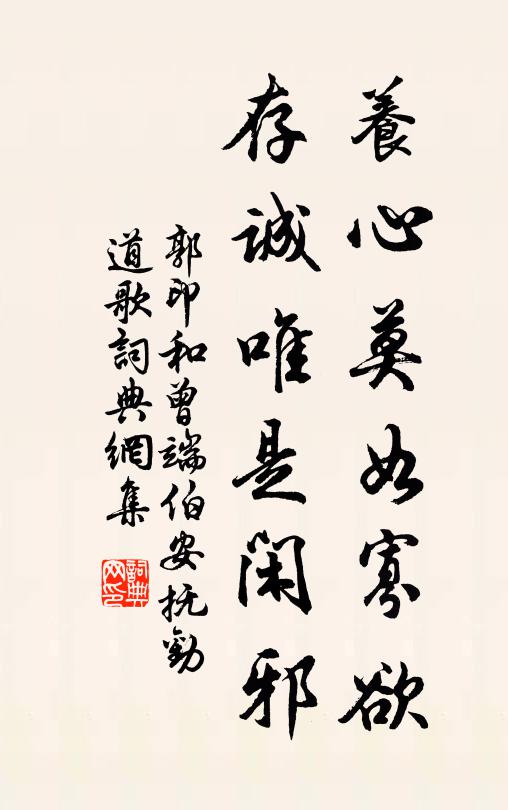 養心莫如寡欲
存誠唯是閑邪
郭印和曾端伯安抚勸
道歌詞典網集
詞典
网印